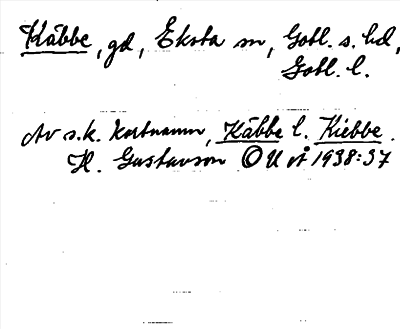 Käbbe, gd, Eksta sn, Gotl. s. hd,
Gotl. l.
Av s.k. kortnamn, Käbbe l. Kiebbe.
H. Gustavson OU vå 1938:37